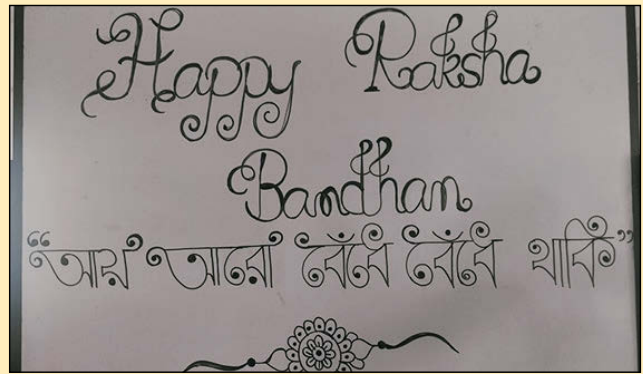 Happy Raksha
Bandhan
“আয় আরো বেঁধে বেঁধে থাকি”